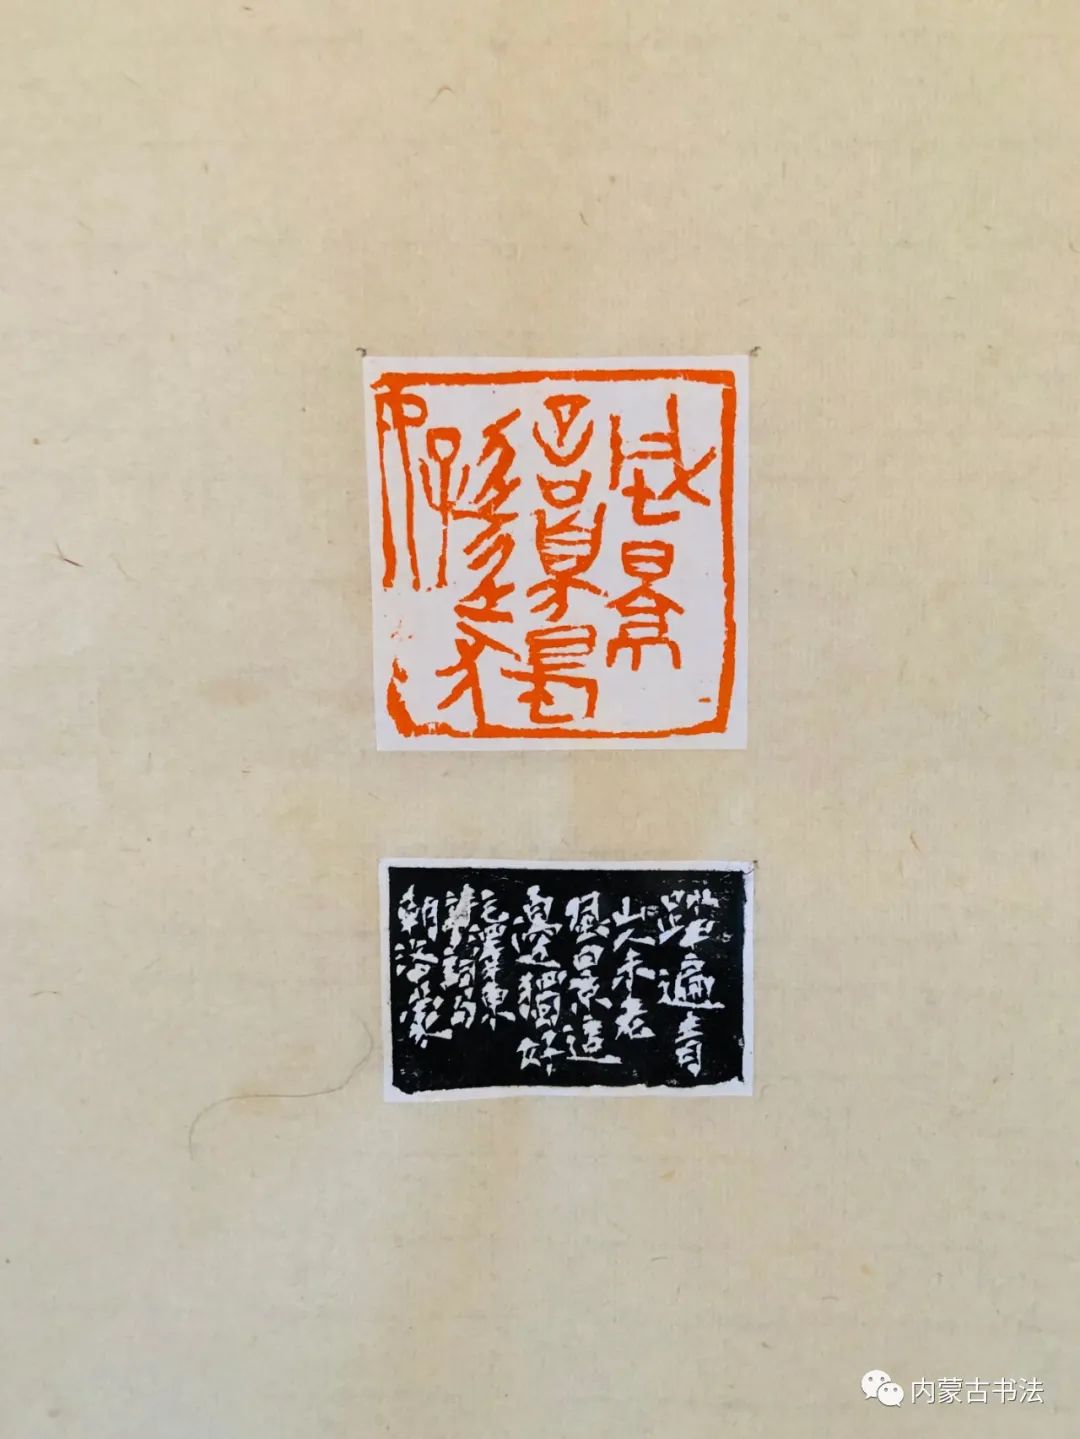 風景
這邊獨
好
踏遍青
山人未老
風景這
邊獨好
毛澤東
詩詞句
朝洛蒙
内蒙古书法